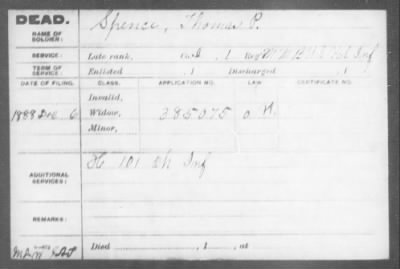 DEAD.
NAME OF SOLDIER: Spence, Thomas P.
SERVICE: Late rank, Co. 1 Reg't Inf
TERM OF SERVICE: Enlisted , 1 Discharged , 1
DATE OF FILING. CLASS. APPLICATION NO. LAW. CERTIFICATE NO.
Invalid,
1888 Dec 6 Widow, 385075
Minor,
ADDITIONAL SERVICES: H 101 Inf
REMARKS:
Died , 1 , at